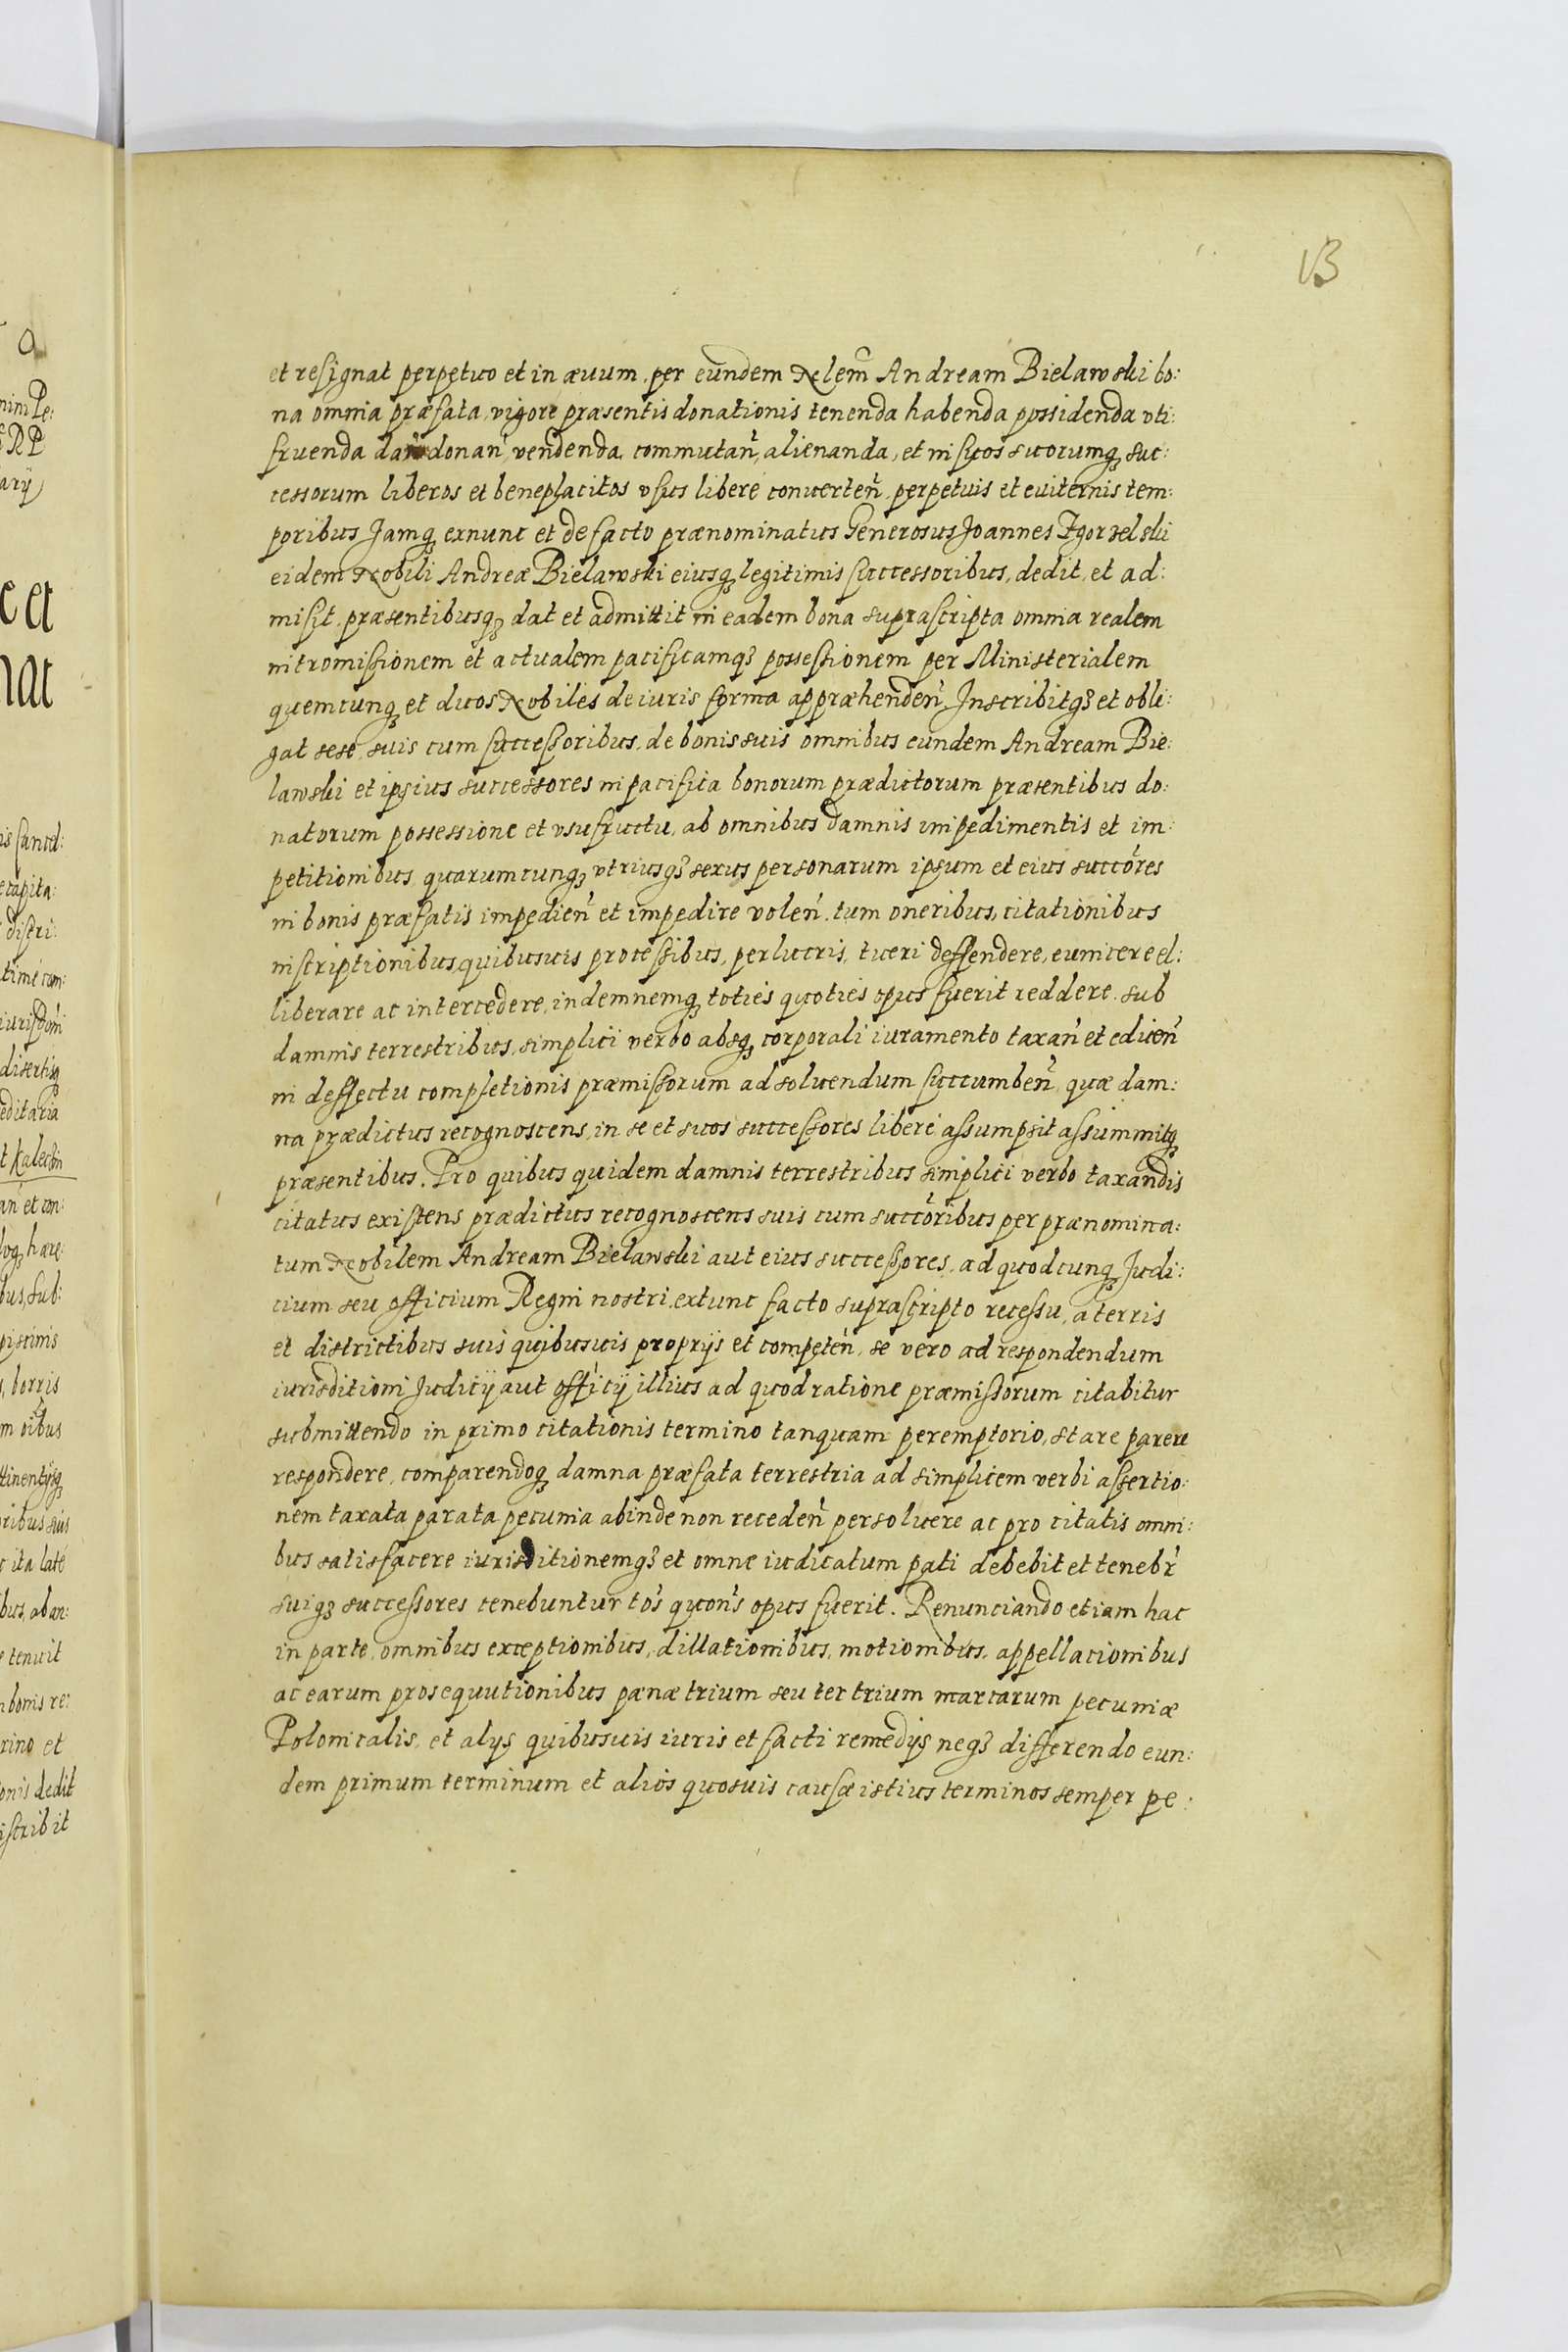 13
et resignat perpetuo et in æuum, per eundem Nlem̃ Andream Bielawski bo:
na omnia præfata, vigore præsentis donationis tenenda habenda possidenda vti:
fruenda dan̄ donan̄, vendenda, commutan̄, alienanda, et in suos suorumq₃ suc:
cessorum liberos et beneplacitos vsus libere conuerten̄, perpetuis et euiternis tem:
poribus Jamq₃ exnunc et de facto prænominatus Generosus Joannes Zgorzelski
eidem Nobili Andreæ Bielawski eiusq₃ legitimis successoribus, dedit, et ad:
misit, præsentibusq₃ dat et admittit in eadem bona suprascripta omnia realem
intromissionem et actualem pacificamq₃ possessionem per Ministerialem
quemcunq₃ et duos Nobiles de iuris forma appræhenden̄, Inscribitq₃ et obli:
gat sese, suis cum successoribus, de bonis suis omnibus eundem Andream Bie:
lawski et ipsius successores in pacifica bonorum prædictorum præsentibus do:
natorum possessione et vsufructu, ab omnibus damnis impedimentis et im:
petitionibus quarumcunq₃ vtriusq₃ sexus personarum ipsum et eius succōres
in bonis præfatis impedien̄ et impedire volen̄, tum oneribus, citationibus
inscriptionibus, quibusuis processibus, per lucris, tueri deffendere, euincere el:
liberare ac intercedere, indemnemq₃ toties quoties opus fuerit reddere, sub
damnis terrestribus, simplici verbo absq₃ corporali iuramento taxan̄ et edicen̄
in deffectu completionis præmissorum ad soluendum succumben̄, quæ dam:
na prædictus recognoscens, in se et suos successores libere assumpsit assummitq₃
præsentibus. Pro quibus quidem damnis terrestribus simplici verbo taxandis
citatus existens prædictus recognoscens suis cum succōribus per prænomina:
tum Nobilem Andream Bielawski aut eius successores, ad quodcunq₃ Judi:
cium seu officium Regni nostri, extunc facto suprascripto recessu, a terris
et districtibus suis quibusuis proprijs et competen̄, se vero ad respondendum
iurisditioni Judicÿ aut officÿ illius ad quod ratione præmissorum citabitur
submittendo in primo citationis termino tanquam peremptorio, stare parere
respondere, comparendoq₃ damna præfata terrestria ad simplicem verbi assertio:
nem taxata parata pecunia abinde non receden̄ persoluere ac pro citatis omni:
bus satisfacere iurisditionemq₃ et omne iudicatum pati debebit et tenebr̄
suiq₃ successores tenebuntur to's quon's opus fuerit. Renunciando etiam hac
in parte, omnibus exceptionibus, dillationibus, motionibus, appellationibus
ac earum prosequutionibus pænæ trium seu ter trium marcarum pecuniæ
Polonicalis, et alys quibusuis iuris et facti remedijs neq₃ differendo eun:
dem primum terminum et alios quosuis causæ istius terminos semper pe: